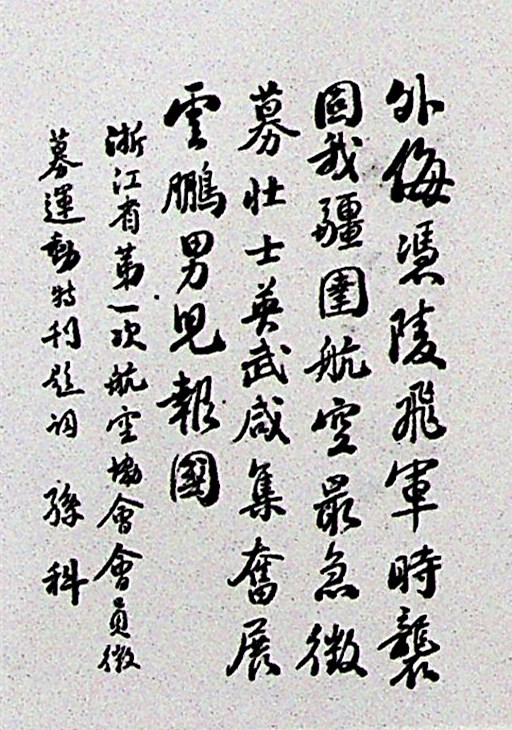 外侮憑陵飛軍時襲
固我疆圉航空最急徵
募壯士英武咸集奮展
雲鵬男兒報國
浙江省第一次航空協會會員徵
募運動特刊題詞 孫科